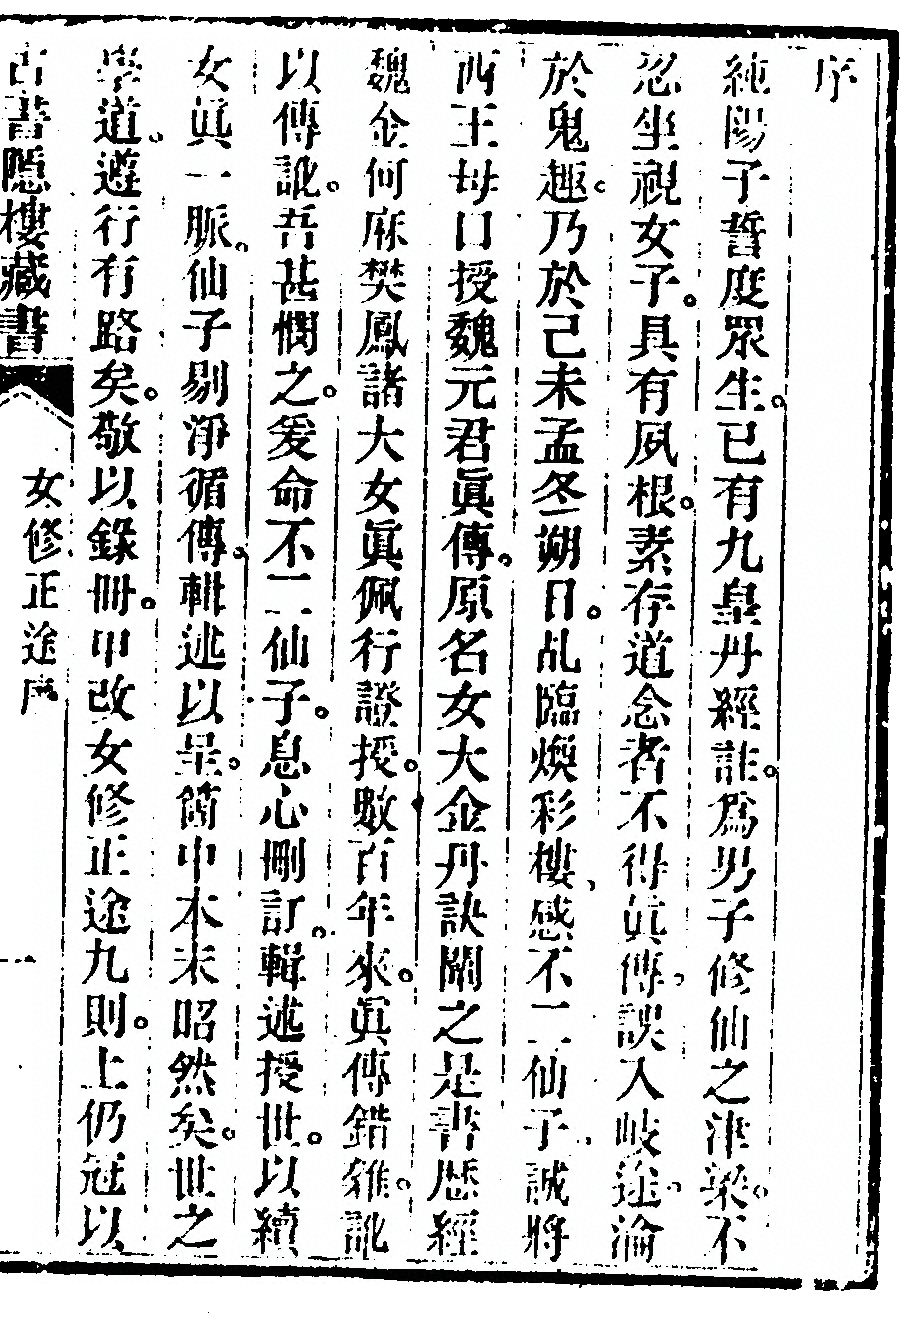 序
純陽子誓度眾生。已有九皇丹經註。爲男子修仙之津梁。不
忍坐視女子。具有夙根。素存道念者不得眞傳。誤入岐途。淪
於鬼趣。乃於己未孟冬朔日。乩臨煥彩樓、感不二仙子、誠將
西王母口授魏元君眞傳。原名女大金丹訣關之是書歷經
魏金何麻樊鳳諸大女眞佩行證授。數百年來。眞傳錯雜。訛
以傳訛。吾甚憫之。爰命不二仙子。息心刪訂。輯述授世。以續
女眞一脈。仙子剔淨循傳。輯述以呈。簡中本末昭然矣。世之
學道。遵行有路矣。敬以錄冊。申改女修正途九則。上仍冠以
古書隱樓藏書
女修正途序
一